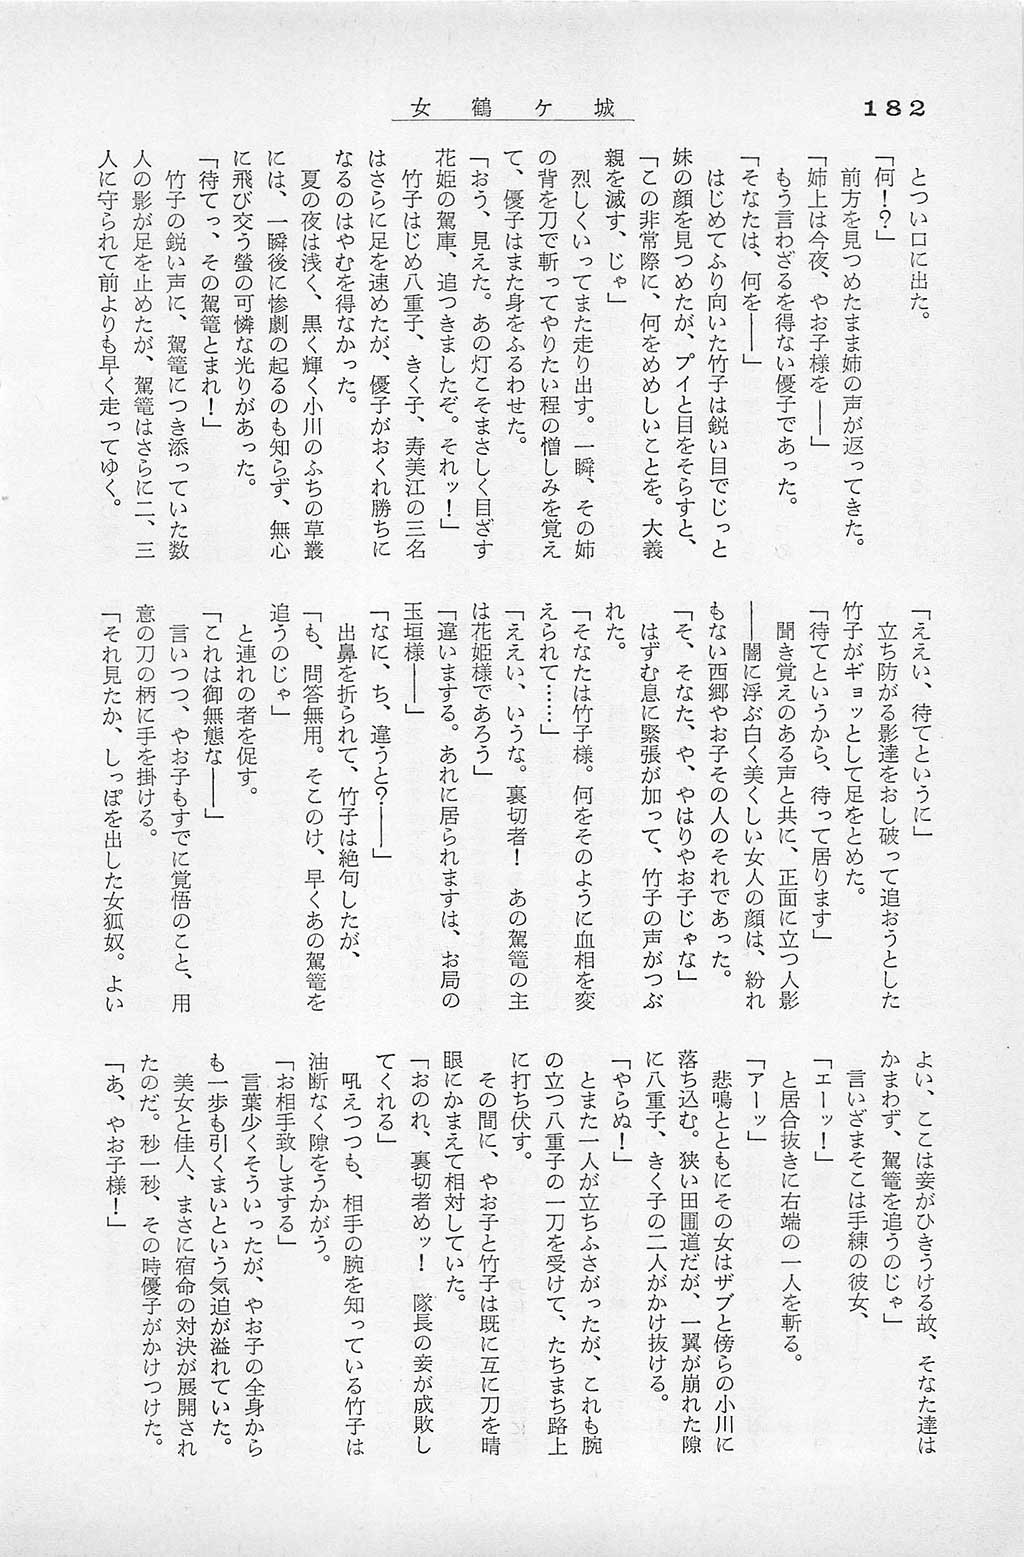 182
女鶴ケ城
とつい口に出た。
「何！？」
前方を見つめたまま姉の声が返ってきた。
「姉上は今夜、やお子様を――」
もう言わざるを得ない優子であった。
「そなたは、何を――」
はじめてふり向いた竹子は鋭い目でじっと
妹の顔を見つめたが、プイと目をそらすと、
「この非常際に、何をめめしいことを。大義
親を滅す、じゃ」
烈しくいってまた走り出す。一瞬、その姉
の背を刀で斬ってやりたい程の憎しみを覚え
て、優子はまた身をふるわせた。
「おう、見えた。あの灯こそまさしく目ざす
花姫の駕庫、追つきましたぞ。それッ！」
竹子はじめ八重子、きく子、寿美江の三名
はさらに足を速めたが、優子がおくれ勝ちに
なるのはやむを得なかった。
夏の夜は浅く、黒く輝く小川のふちの草叢
には、一瞬後に惨劇の起るのも知らず、無心
に飛び交う螢の可憐な光りがあった。
「待てっ、その駕篭とまれ！」
竹子の鋭い声に、駕篭につき添っていた数
人の影が足を止めたが、駕篭はさらに二、三
人に守られて前よりも早く走ってゆく。
「ええい、待てというに」
立ち防がる影達をおし破って追おうとした
竹子がギョッとして足をとめた。
「待てというから、待って居ります」
聞き覚えのある声と共に、正面に立つ人影
――闇に浮ぶ白く美くしい女人の顔は、紛れ
もない西郷やお子その人のそれであった。
「そ、そなた、や、やはりやお子じゃな」
はずむ息に緊張が加って、竹子の声がつぶ
れた。
「そなたは竹子様。何をそのように血相を変
えられて……」
「ええい、いうな。裏切者！　あの駕篭の主
は花姫様であろう」
「違いまする。あれに居られますは、お局の
玉垣様――」
「なに、ち、違うと？――」
出鼻を折られて、竹子は絶句したが、
「も、問答無用。そこのけ、早くあの駕篭を
追うのじゃ」
と連れの者を促す。
「これは御無態な――」
言いつつ、やお子もすでに覚悟のこと、用
意の刀の柄に手を掛ける。
「それ見たか、しっぽを出した女狐奴。よい
よい、ここは妾がひきうける故、そなた達は
かまわず、駕篭を追うのじゃ」
言いざまそこは手練の彼女、
「エーッ！」
と居合抜きに右端の一人を斬る。
「アーッ」
悲鳴とともにその女はザブと傍らの小川に
落ち込む。狭い田圃道だが、一翼が崩れた隙
に八重子、きく子の二人がかけ抜ける。
「やらぬ！」
とまた一人が立ちふさがったが、これも腕
の立つ八重子の一刀を受けて、たちまち路上
に打ち伏す。
その間に、やお子と竹子は既に互に刀を晴
眼にかまえて相対していた。
「おのれ、裏切者めッ！　隊長の妾が成敗し
てくれる」
吼えつつも、相手の腕を知っている竹子は
油断なく隙をうかがう。
「お相手致しまする」
言葉少くそういったが、やお子の全身から
も一歩も引くまいという気迫が溢れていた。
美女と佳人、まさに宿命の対決が展開され
たのだ。秒一秒、その時優子がかけつけた。
「あ、やお子様！」